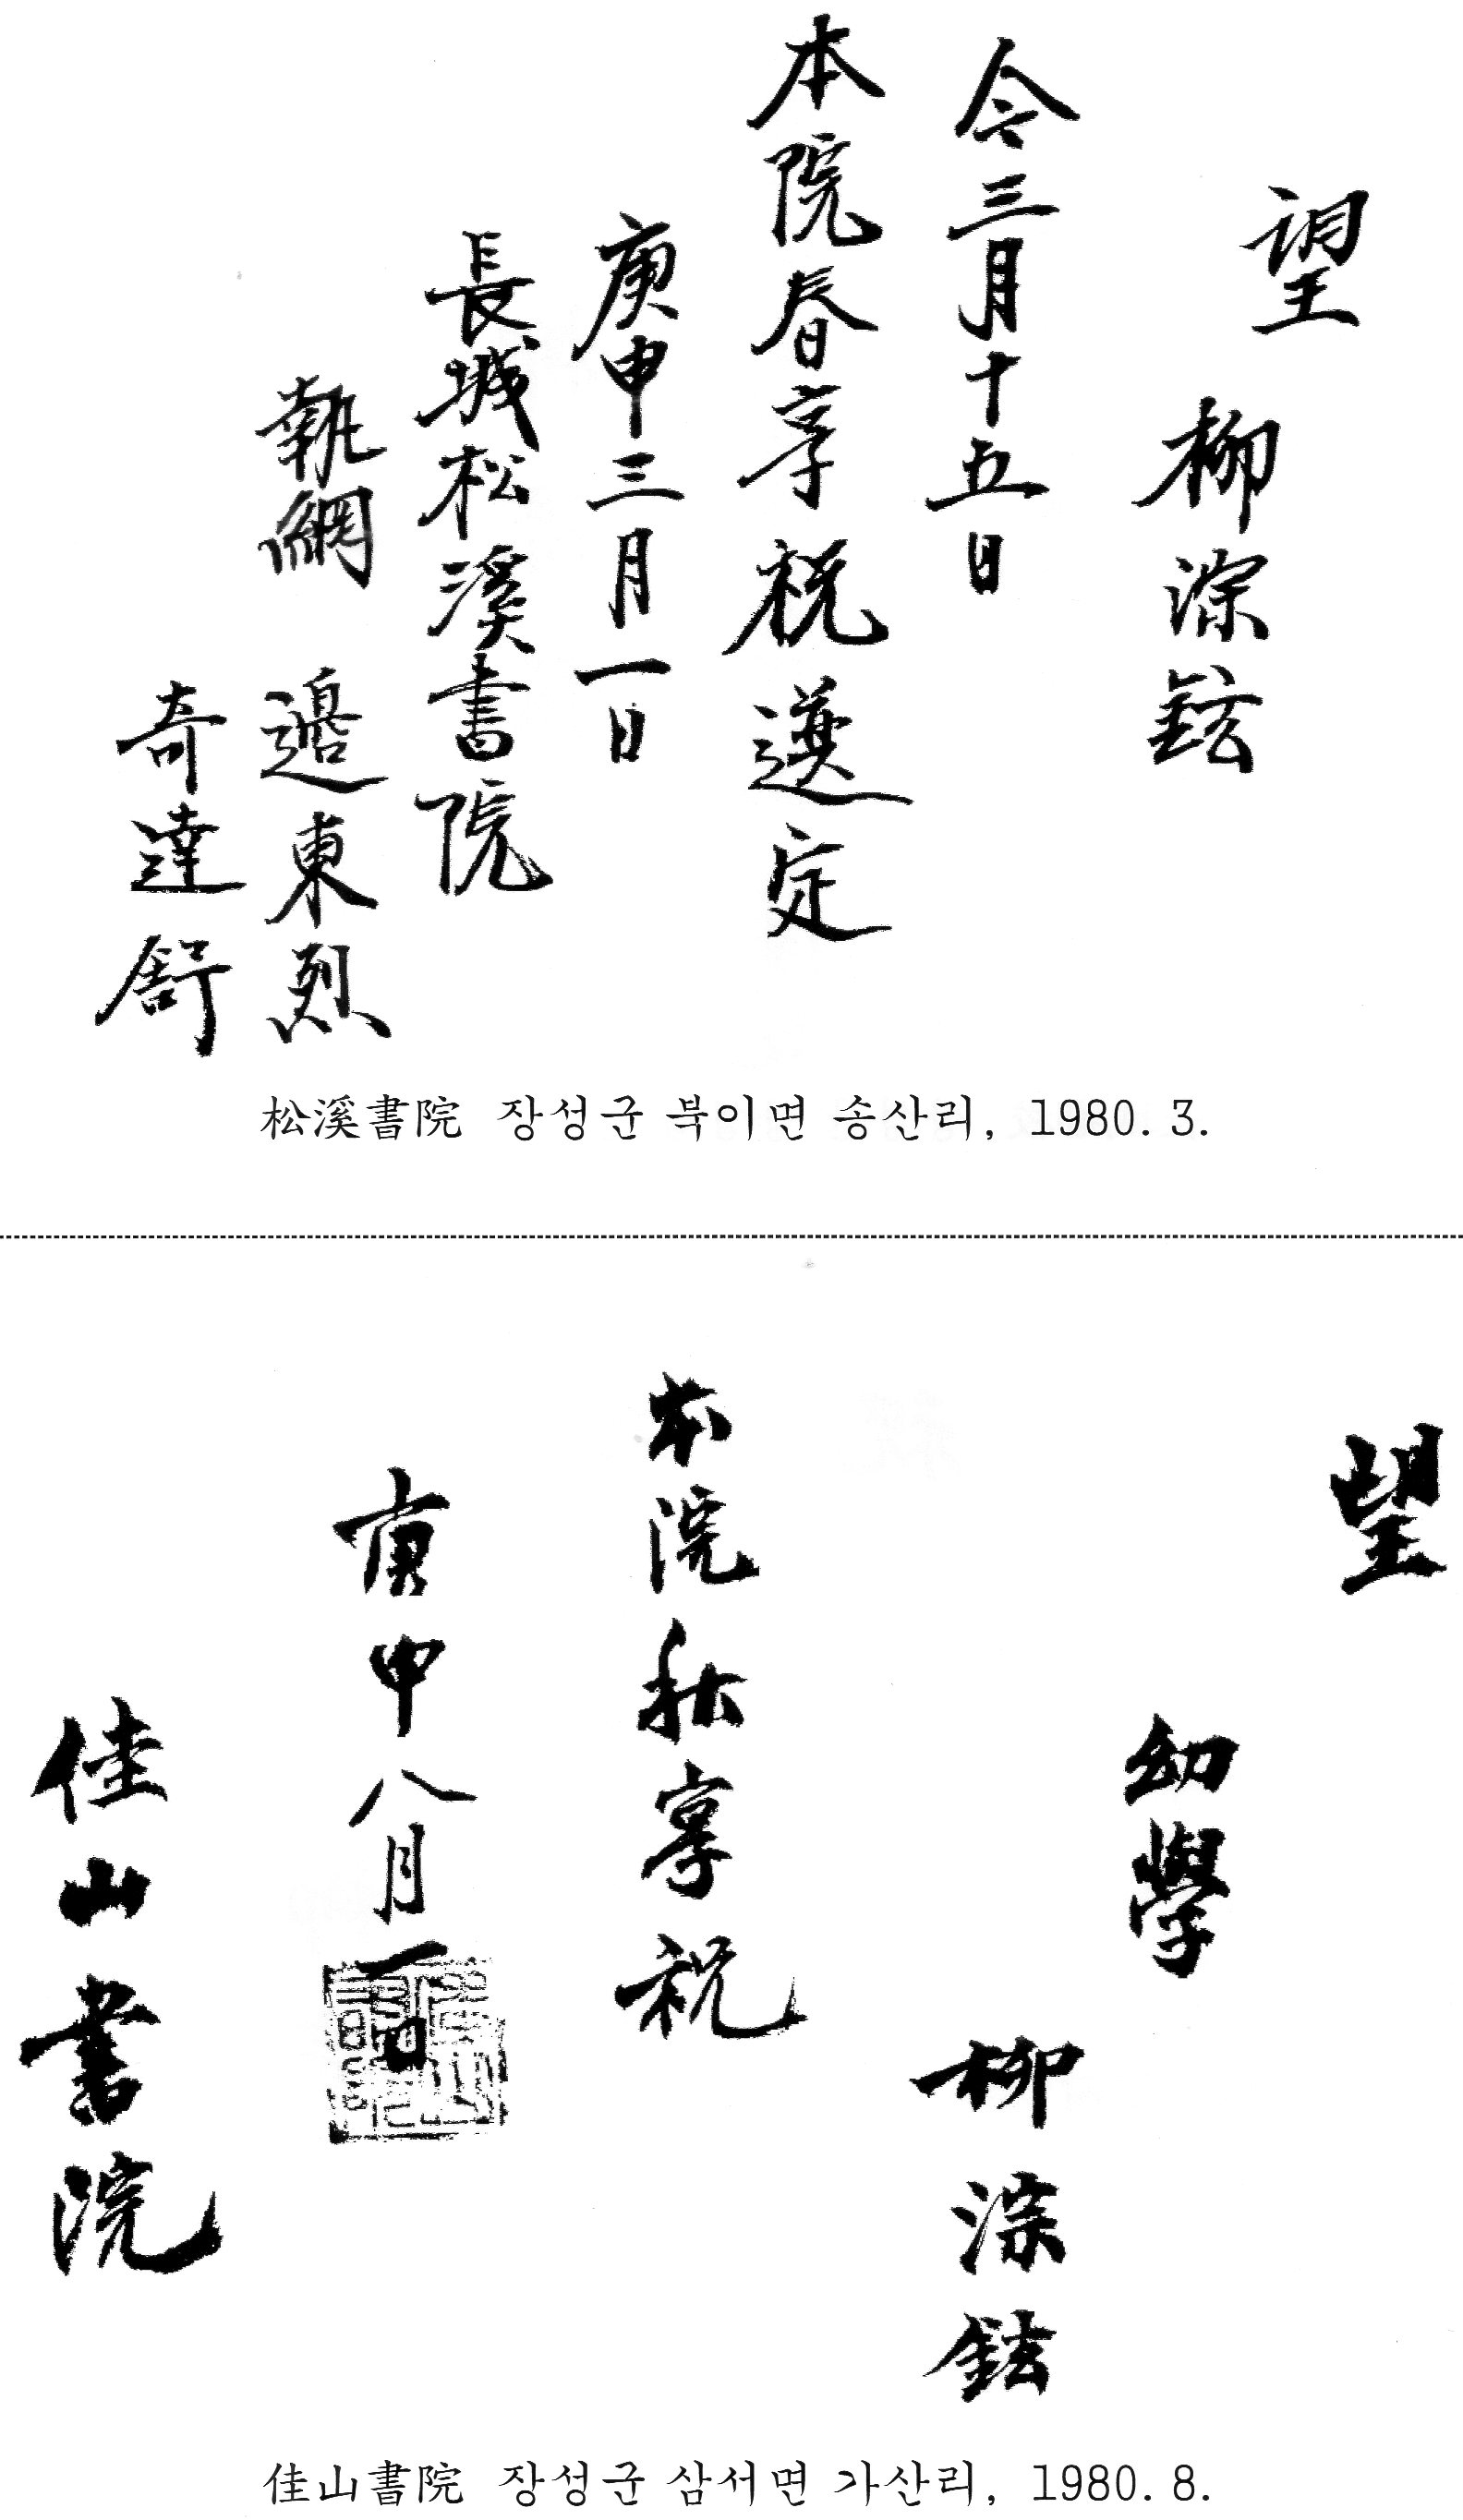 望
柳淙鉉
今三月十五日
本院春享祝選定
庚申三月一日
長城松溪書院
執綱 邊東烈
奇達舒
松溪書院 장성군 북이면 송산리, 1980. 3.
望
幼學
柳淙鉉
本院秋享祝
庚申八月一日
佳山書院
佳山書院 장성군 삼서면 가산리, 1980. 8.